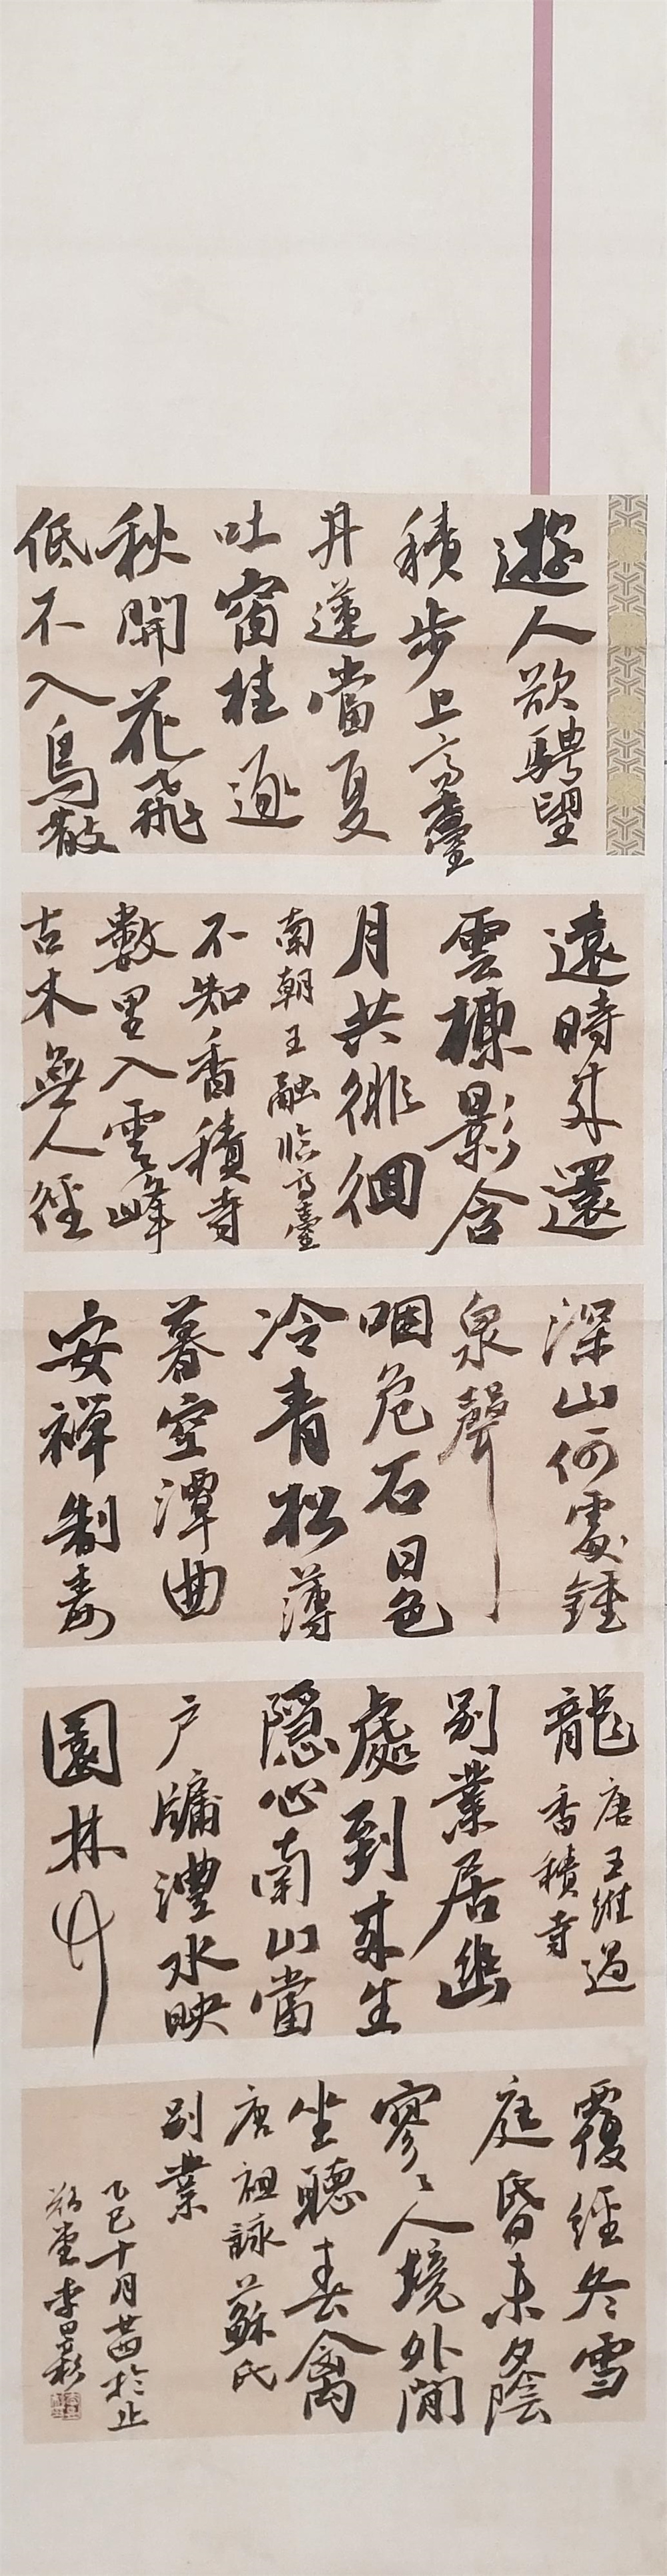 遊人欲騁望
積步上高臺
井蓮當夏
吐窗桂逐
秋開花飛
低不入鳥散
遠時來還
雲棟影含
月共徘徊
南朝王融臨高臺
不知香積寺
數里入雲峰
古木無人徑
深山何處鍾
泉聲
咽危石日色
冷青松薄
暮空潭曲
安禪制毒
龍唐王維過
香積寺
別業居幽
處到來生
隱心南山當
戶牖灃水映
園林竹
覆經冬雪
庭昏未夕陰
寥〻人境外閒
坐聽春禽
唐祖詠蘇氏
別業
乙巳十月廿四於止
堂李日彩